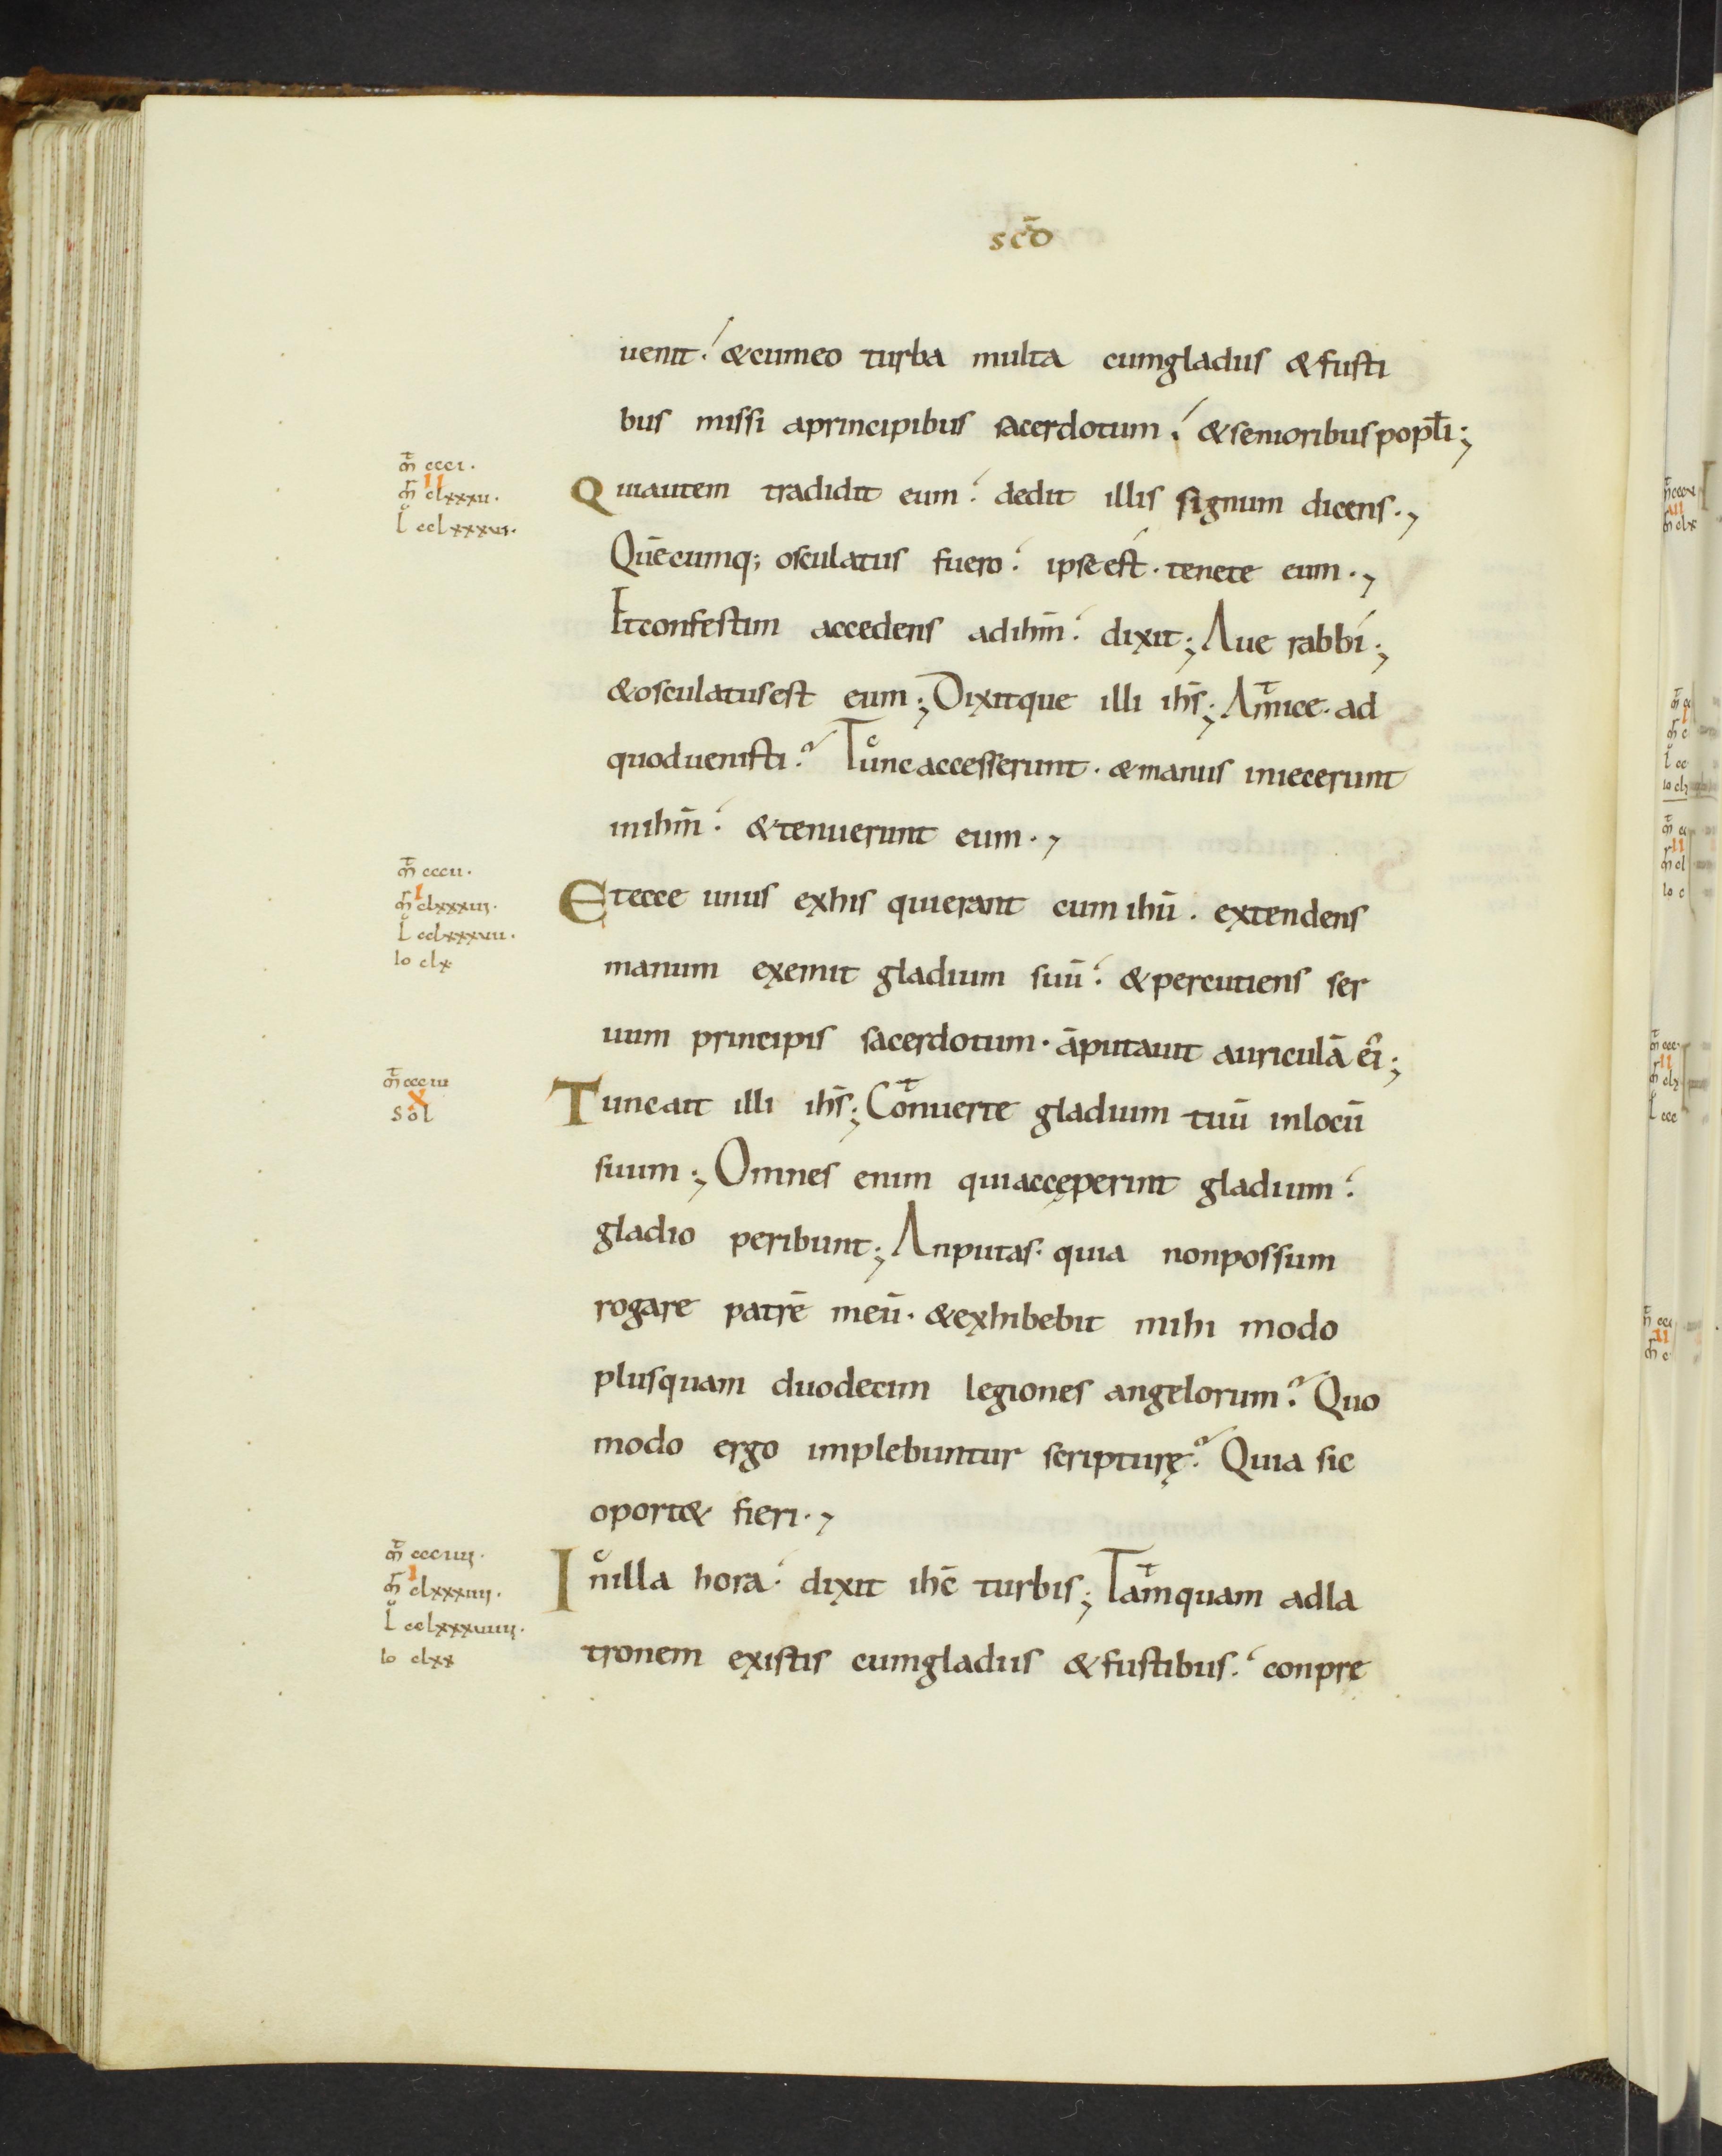 scd̄o
uenit. &cumeo turba multa cumgladiis &fusti
bus missi aprincipibus sacerdotum. &senioribuspopłi;
m̄ ccci.
II
m̄ clxxxii.
l cclxxxvi.
Quiautem tradidit eum. dedit illis signum dicens.,
Quēcumq; osculatus fuero. ipseest. tenete eum.,
Etconfestim accedens adihm̄. dixit; Aue rabbi;
&osculatusest eum; Dixitque illi ihs̄; Amice. ad
quoduenisti? Tuncaccesserunt. &manus iniecerunt
inihm̄. &tenuerunt eum.,
m̄ cccii.
I
m̄ clxxxiii.
l cclxxxvii.
Io clx
Etecce unus exhis quierant cum ihū. extendens
manum exemit gladium suū. &percutiens ser
uum principis sacerdotum. āputauit auriculā ei;
m̄ ccciii
X
Sol
Tuncait illi ihs̄; Conuerte gladium tuū inlocū
suum; Omnes enim quiaccęperint gladium.
gladio peribunt; Anputas. quia nonpossum
rogare patrē meū. &exhibebit mihi modo
plusquam duodecim legiones angelorum? Quo
modo ergo implebuntur scripturę? Quia sic
oport& fieri.,
m̄ ccciiii.
I
m̄ clxxxiiii.
l cclxxxviiii.
Io clxx
Inilla hora. dixit ihc̄ turbis; Tamquam adla
tronem existis cumgladiis &fustibus. conpre